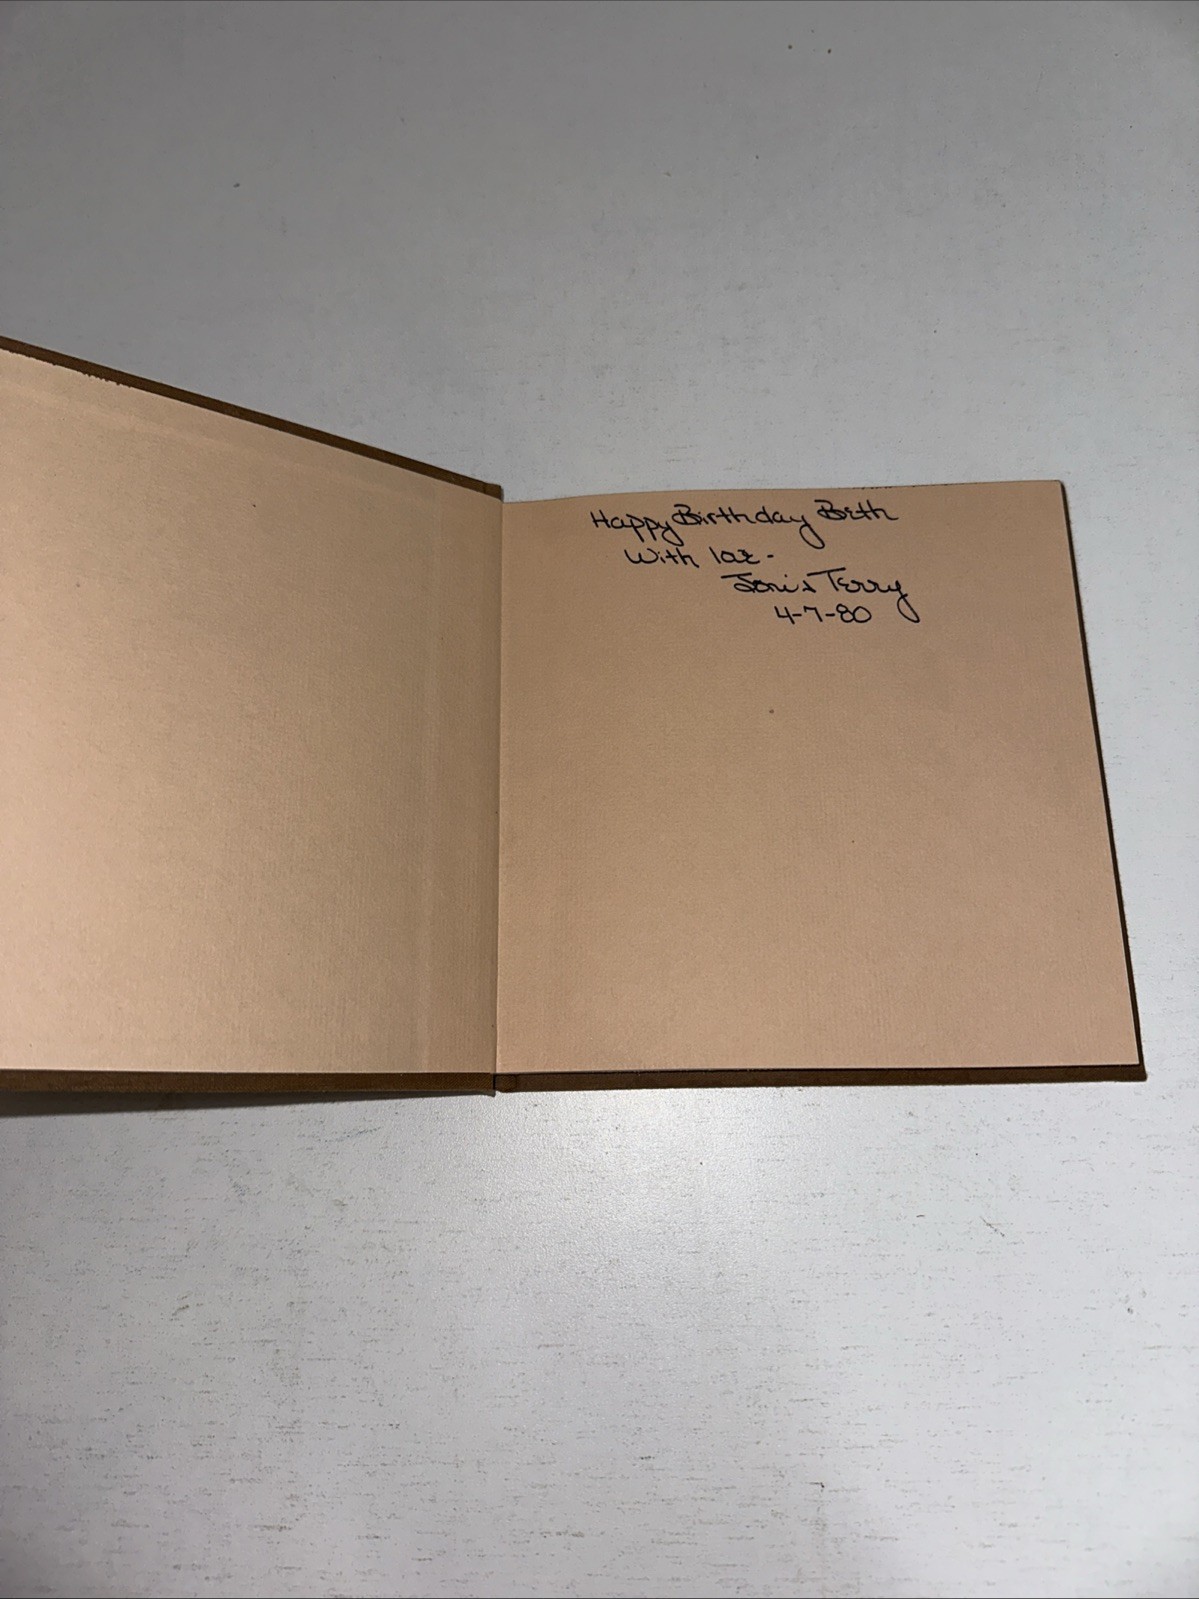 Happy Birthday Beth
With love -
Toni & Terry
4-7-80